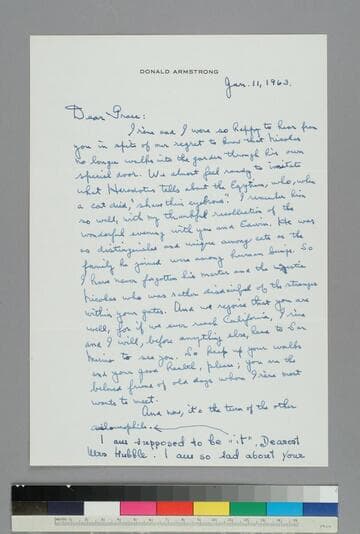 DONALD ARMSTRONG
Jan. 11, 1963.
Dear Grace:
Irene and I were so happy to hear from
you in spite of our regret to know that Nicolas
no longer walks into the garden through his own
special door. We almost feel ready to imitate
what Herodotus tells about the Egyptians, who, when
a cat died, "shave their eyebrows." I remember him
so well, with my thankful recollection of the
wonderful evening with you and Edwin. He was
as distinguished and unique among cats as the
family he joined were among human beings. So
I have never forgotten his master and the
Nicolas who was rather disdainful of the strangers
within your gates. And we rejoice that you are
well, for if we ever reach California, Irene
and I will, before anything else, head to San
Marino to see you. So keep up your walks
and your good health, please; you are the
beloved friend of old days whom Irene most
wants to meet.
And now, it's the turn of the other
I am supposed to be "it". Dearest
Mrs Hubble. I am so sad about your